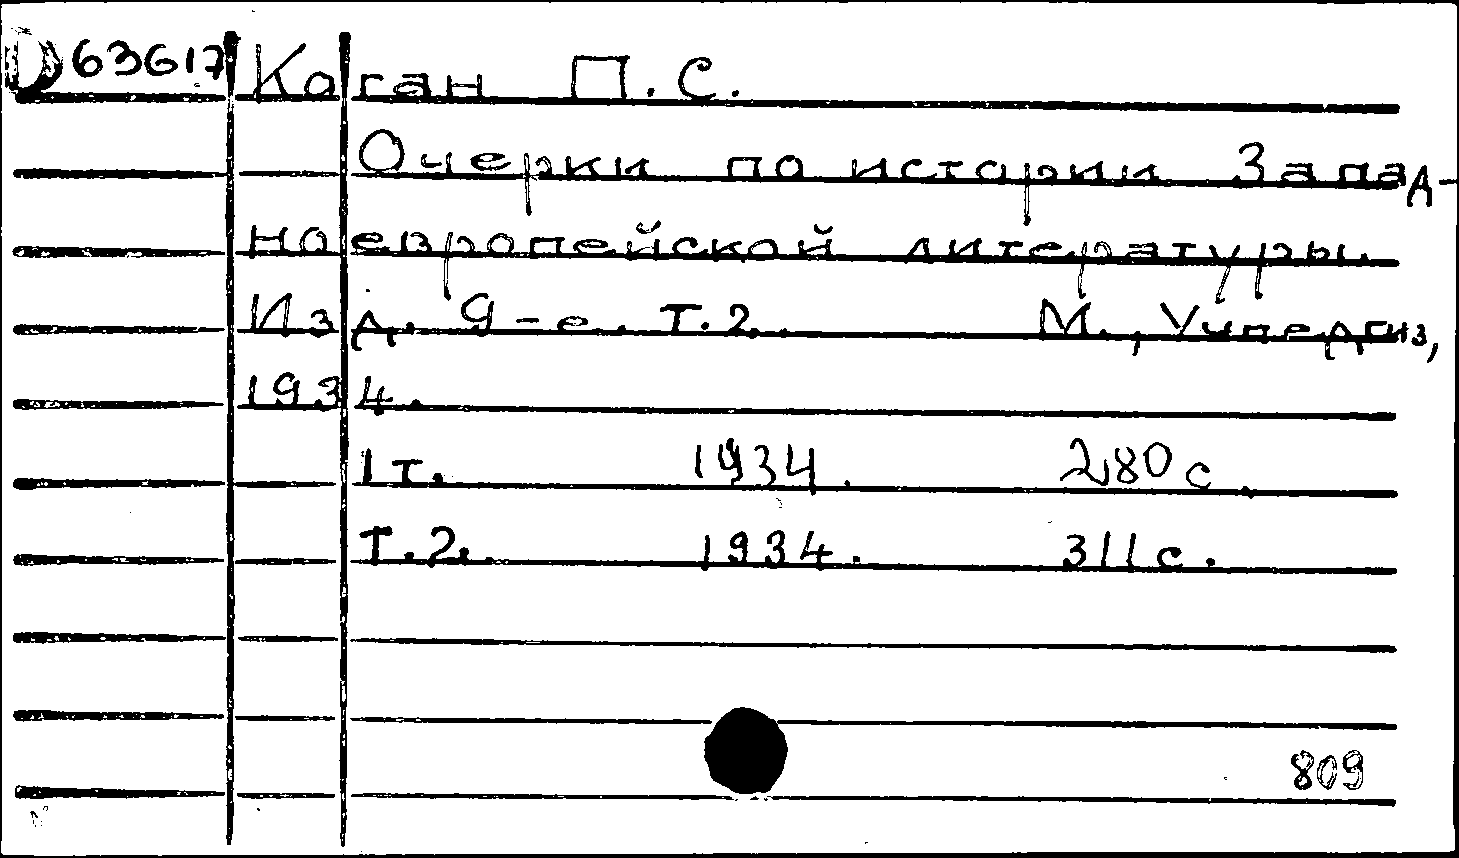 D63617 Коган П.С.
Очерки по истории Запад-
ноевропейской литературы.
Изд. 9-е. Т.2. М., Учпедгиз,
1934.
1 т. 1934. 280 с.
Т.2. 1934. 311 с.
809